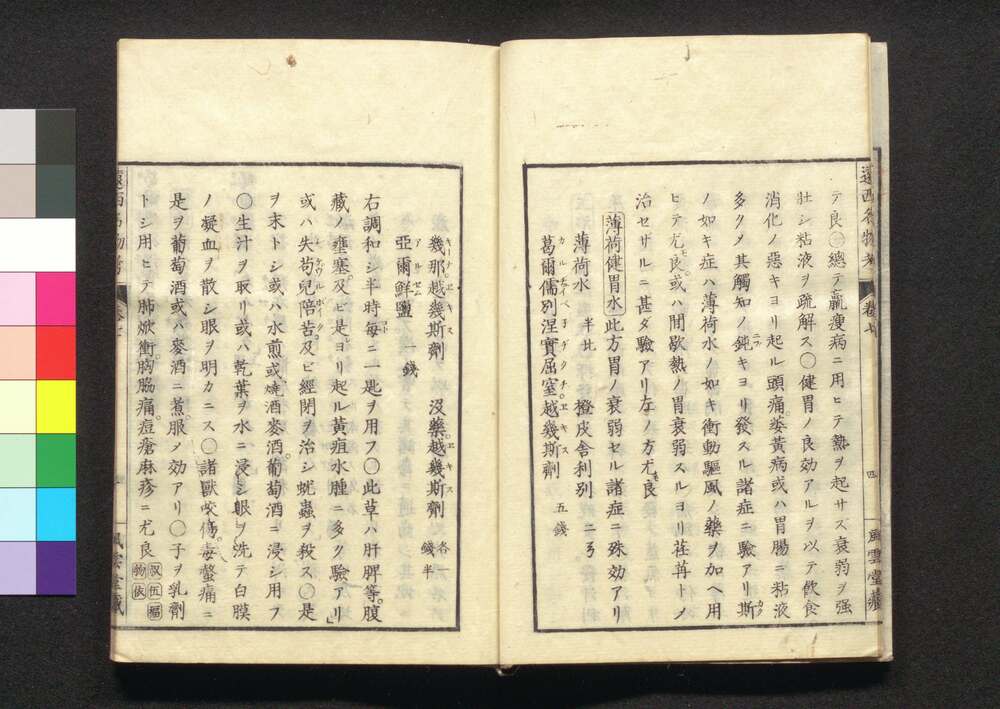 遠西名物考 卷七 四 風雲堂藏
テ良㊂總テ羸瘦病ニ用ヒテ熱ヲ起サス衰弱ヲ强
壮シ粘液ヲ疏解ス〇健胃ノ良効アルヲ以テ飮食
消化ノ惡キヨリ起ル頭痛。萎黃病或ハ胃腸ニ粘液
多クメ其觸知ノ鈍キヨリ發スル諸症ニ驗アリ斯
ノ如キ症ハ薄荷水ノ如キ衝動驅風ノ藥ヲ加ヘ用
ヒテ尤良。或ハ間歇熱ノ胃衰弱スルヨリ荏苒トメ
治セザルニ甚タ驗アリ左ノ方尤良
薄荷健胃水 此方胃ノ衰弱セル諸症ニ殊効アリ
薄荷水 半比 橙皮舎利別 二弓
葛爾儒別涅實屈室越幾斯劑 五錢
幾那越幾斯劑 沒藥越幾斯劑 各一錢半
亞爾鮮鹽 一錢
右調和シ半時每ニ一匙ヲ用フ〇此草ハ肝脾等。腹
藏ノ壅塞。及ヒ是ヨリ起ル黃疸水腫ニ多ク驗アリ
或ハ失苟兒陪苦。及ヒ經閉ヲ治シ蚘蟲ヲ殺ス〇是
ヲ末トシ或ハ水煎或燒酒麥酒。葡萄酒ニ浸シ用フ
〇生汁ヲ取リ或ハ乾葉ヲ水ニ浸シ眼ヲ洗テ白膜
ノ凝血ヲ散シ眼ヲ明カニス〇諸獸咬傷。毒螫痛ニ
是ヲ葡萄酒或ハ麥酒ニ煮。服ノ効アリ〇子ヲ乳劑
トシ用ヒテ肺焮衝。胸脇痛。痘瘡麻疹ニ尤良 㕛伍福物依
遠西名物考 卷七 四 風雲堂藏